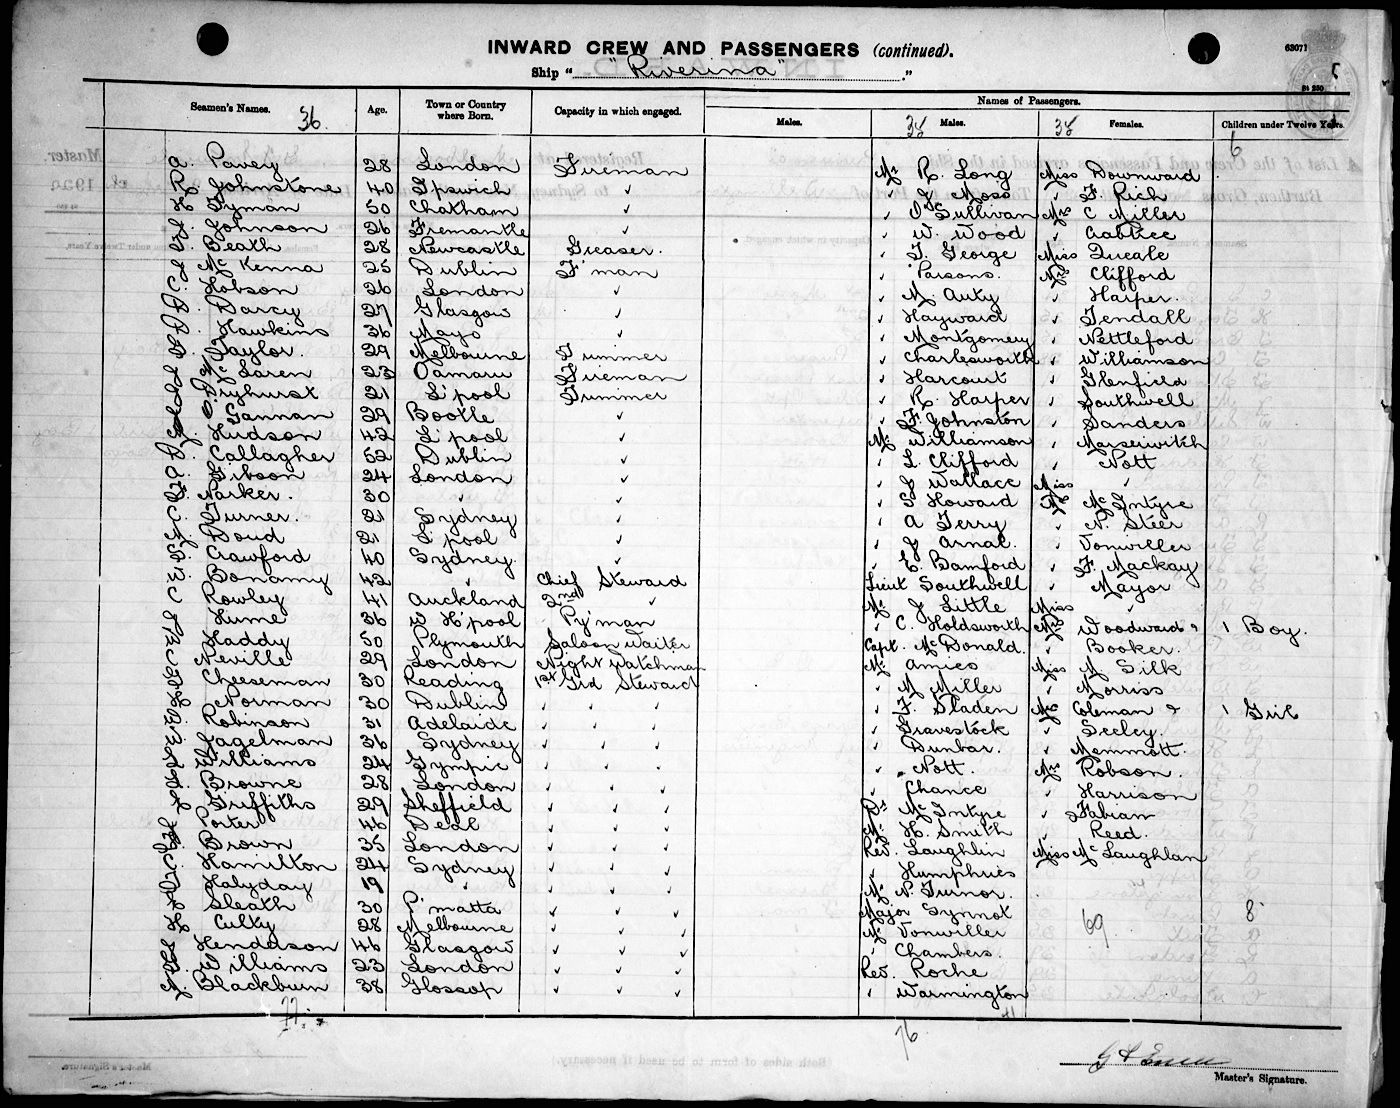 INWARD CREW AND PASSENGERS (continued).
63071
5
Ship " "Riverina" ."
Seamen's Names. 36. Age. Town or Country where Born. Capacity in which engaged. Names of Passengers.
Males. 38 Males. 38 Females. Children under Twelve Years.
6
A. Pavey 28 London Fireman Mr R. Long Miss Downward
R Johnstone 40 Ipswich " " J Moss " F. Rich
H Tyman 50 Chatham " " O'Sullivan Mrs C Miller
Johnson 26 Fremantle " " W. Wood " Crabtree
Beath 28 Newcastle Greaser. " T. George Miss Queale
McKenna 25 Dublin F'man " Parsons. Mrs Clifford
C Hobson 26 London " " M. Auky " Harper.
Darcy 27 Glasgow " " Hayward " Tendall
Hawkins 36 Mayo " " Montgomery " Nettleford
Taylor. 29 Melbourne Trimmer " Charlesworth " Williamson
McLaren 23 Oamaru Fireman " Harcourt " Glenfield
Pryhurst 21 L'pool Trimmer " R. Harper " Southwell
Gannan 29 Bootle " " F. Johnston " Sanders
Hudson 42 L'pool " Mr Williamson " Marseiwitch
Callagher 52 Dublin " " L. Clifford " Nott
Gibson 24 London " " J Wallace Miss "
Parker. 30 " " " S Howard Mrs McIntyre
Turner. 21 Sydney " " A Terry " N. Steer
Doud 21 L'pool " " J Arnal. " Vonwiller
Crawford 40 Sydney. " " E. Bamford " F. Mackay
Bonamy 42 " Chief Steward Lieut Southwell " Mayor
C Rowley 41 Auckland 2nd " Mr J Little Miss "
Hume 36 W H'pool P'y'man " C. Holdsworth Mrs Woodward & 1 Boy.
Haddy 50 Plymouth Saloon Waiter Capt. McDonald. " Booker.
C Neville 29 London Night Watchman Mr Amies Miss M. Silk
Cheeseman 30 Reading 1st Grd Steward " M Miller " Morriss
Norman 30 Dublin " " " " F. Sladen Mrs Coleman & 1 Girl
Robinson 31 Adelaide " " " " Gravestock " Seeley.
Jagelman 36 Sydney " " " " Dunbar. " Memmott.
Williams 24 Gympie " " " " Nott. Mrs Robson.
Browne 28 London " " " " Chance " Harrison
Griffiths 29 Sheffield " " " Dr McIntyre " Fabian
Porter 46 Deal " " " Mr H. Smith " Reed.
Brown 35 London " " " Rev. Laughlin Miss McLaughlan
Hamilton 24 Sydney " " " " Humphries
Halyday 19 " " " " Mr N. Turner.
Sleath 30 P'matta " " " Major Synnot 69 8
Cutty 28 Melbourne " " " Mr Vonwiller
Henderson 46 Glasgow " " " " Chambers.
Williams 23 London " " " Rev. Roche
Blackburn 38 Glossop " " " " Warmington
41
77.
76
Master's Signature.